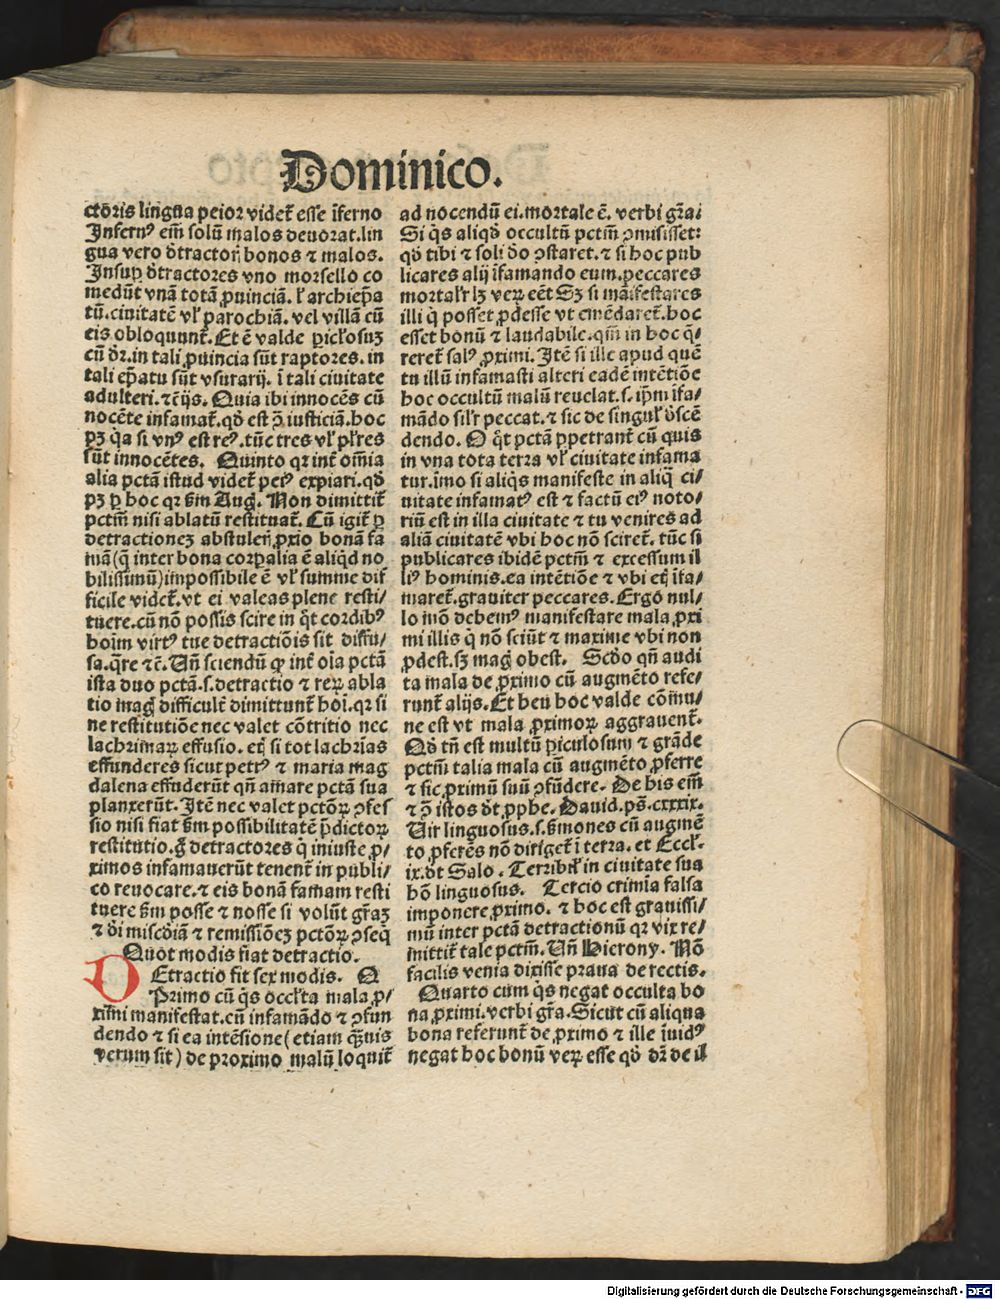 Dominico.
ctoris lingua peior videt̃ esse ĩferno
Infernꝰ em̃ solũ malos deuorat.lin
gua vero d̾tractoꝝ bonos ⁊ malos.
Insuꝑ d̾tractores vno morsello co
medũt vnã totã ꝓuinciã. ł archiep̃a
tũ.ciuitatẽ vł parochiã. vel villã cũ
eis obloquunt̃. Et ẽ valde ꝑicl̾osuꝫ
cũ dr̃.in tali ꝓuincia sũt raptores. in
tali ep̃atu sũt vsurarij. ĩ tali ciuitate
adulteri. ⁊c̃ijs. Quia ibi innocẽs cũ
nocẽte infamat̃. qd̾ est ꝯ̃ iusticiã. hoc
pꝫ q̃a si vnꝰ est reꝰ. tũc tres vł pl̾res
sũt innocẽtes. Quinto qꝛ int̃ om̃ia
alia pctã istud videt̃ peiꝰ expiari. qd̾
pꝫ ꝑ hoc qꝛ ẜm Aug̾. Non dimittit̃
pctm̃ nisi ablatũ restituat̃. Cũ igit̃ ꝑ
detractioneꝫ abstuleri̾ ꝓxio bonã fa
mã (q̃ inter bona corꝑalia ẽ aliq̾d no
bilissimũ) impossibile ẽ vł summe dif
ficile videt̃. vt ei valeas plene resti/
tuere. cũ nõ possis scire in q̾t cordibꝰ
hoĩm virtꝰ tue detractiõis sit diffu/
sa. q̃re ⁊c̃. Vñ sciendũ ꝙ int̃ oĩa pctã
ista duo pctã. s. detractio ⁊ reꝝ abla
tio mag̾ difficult̃ dimittunt̃ hoĩ. qꝛ si
ne restitutiõe nec valet cõtritio nec
lachrimaꝝ effusio. etꝫ si tot lachrĩas
effunderes sicut petrꝰ ⁊ maria mag
dalena effuderũt qñ amare pctã sua
planxerũt. Itẽ nec valet pctõꝝ ꝯfes
sio nisi fiat ẜm possibilitatẽ p̃dictoꝝ
restitutio. g̾ detractores q̾ iniuste ꝓ/
ximos infamauerũt tenent̃ in publi/
co reuocare. ⁊ eis bonã famam resti
tuere ẜm posse ⁊ nosse si volũt gr̃aꝫ
⁊ di̾ mis̾cdiã ⁊ remissiõeꝫ pctõꝝ ꝯseq̾
Quot modis fiat detractio.
DEtractio fit sex modis. Q
Primo cũ q̾s occl̾ta mala ꝓ/
ximi manifestat. cũ infamãdo ⁊ ꝯfun
dendo ⁊ si ea intẽsione (etiam q̃uis
verum sit) de proximo malũ loquit̃
ad nocendũ ei. mortale ẽ. verbi gr̃a/
Si q̾s aliqd̾ occultũ pctm̃ ꝯmisisset:
qd̾ tibi ⁊ soli do̾ ꝯstaret. ⁊ si hoc pub
licares alij ĩfamando eum. peccares
mortalr̾ lꝫ veꝝ eẽt Sꝫ si manifestares
illi q̾ posset ꝓdesse vt emẽdaret̃. hoc
esset bonũ ⁊ laudabile. qm̃ in hoc q̃/
reret̃ salꝰ ꝓximi. Itẽ si ille apud quẽ
tu illũ infamasti alteri eadẽ intẽtiõe
hoc occultũ malũ reuelat. s. ip̃m ĩfa/
mãdo silr̾ peccat. ⁊ sic de singul̾ d̾scẽ
dendo. Q̃ q̾t pctã ꝑpetrant̃ cũ quis
in vna tota terra vł ciuitate infama
tur. ĩmo si aliq̾s manifeste in aliq̃ ci/
uitate infamatꝰ est ⁊ factũ eiꝰ noto/
riũ est in illa ciuitate ⁊ tu venires ad
aliã ciuitatẽ vbi hoc nõ sciret̃. tũc si
publicares ibidẽ pctm̃ ⁊ excessum il
liꝰ hominis. ea intẽtiõe ⁊ vbi eũ ĩfa/
maret̃. grauiter peccares. Ergo nul/
lo mõ debemꝰ manifestare mala ꝓxi
mi illis q̾ nõ sciũt ⁊ maxime vbi non
ꝓdest. sꝫ mag̾ obest. Scd̾o qñ audi
ta mala de ꝓximo cũ augmẽto refe/
runt̃ alijs. Et heu hoc valde cõmu/
ne est vt mala ꝓximoꝝ aggrauent̃.
Qd̾ tñ est multũ ꝑiculosum ⁊ grãde
pctm̃ talia mala cũ augmẽto ꝓferre
⁊ sic ꝓximũ suũ ꝯfũdere. De his em̃
⁊ ꝯ̃ istos dt̾ ꝓphe. Dauid. ps̃. cxxxix.
Vir linguosus. s. ẜmones cũ augmẽ
to ꝓferẽs nõ diriget̃ ĩ terra. et Eccl̾.
ix. dt̾ Salo. Terribil̾ in ciuitate sua
hõ linguosus. Tercio crimĩa falsa
imponere ꝓximo. ⁊ hoc est grauissi/
mũ inter pctã detractionũ qꝛ vix re/
mittit̃ tale pctm̃. Vñ Hierony. Nõ
facilis venia dixisse praua de rectis.
Quarto cum q̾s negat occulta bo
na ꝓximi. verbi gr̃a. Sicut cũ aliqua
bona referunt̃ de ꝓximo ⁊ ille ĩuidꝰ
negat hoc bonũ veꝝ esse qd̾ dr̃ de il
Digitalisierung gefördert durch die Deutsche Forschungsgemeinschaft - DFG